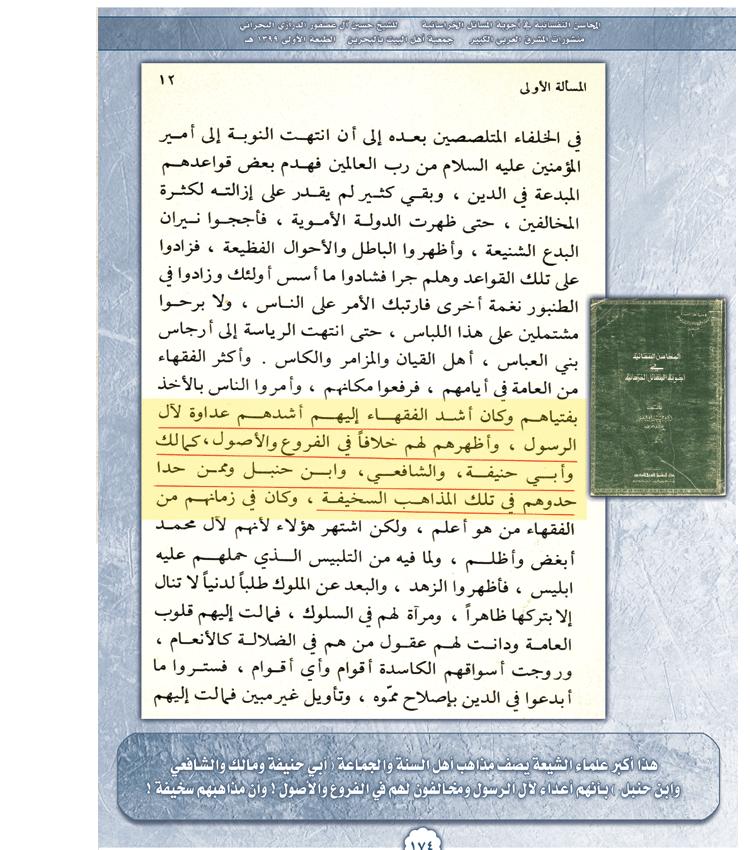 المحاسن النفسانية في أجوبة المسائل الخراسانية للشيخ حسين آل عصفور الدرازي البحراني
منشورات المشرق العربي الكبير جمعية أهل البيت بالبحرين الطبعة الأولى ١٣٩٩ هـ
المسألة الأولى ١٢
في الخلفاء المتلصصين بعده إلى أن انتهت النوبة إلى أمير
المؤمنين عليه السلام من رب العالمين فهدم بعض قواعدهم
المبدعة في الدين ، وبقي كثير لم يقدر على إزالته لكثرة
المخالفين ، حتى ظهرت الدولة الأموية ، فأججوا نيران
البدع الشنيعة ، وأظهروا الباطل والأحوال الفظيعة ، فزادوا
على تلك القواعد وهلم جرا فشادوا ما أسس أولئك وزادوا في
الطنبور نغمة أخرى فارتبك الأمر على الناس ، ولا برحوا
مشتملين على هذا اللباس ، حتى انتهت الرياسة إلى أرجاس
بني العباس ، أهل القيان والمزامر والكاس . وأكثر الفقهاء
من العامة في أيامهم ، فرفعوا مكانهم ، وأمروا الناس بالأخذ
بفتياهم وكان أشد الفقهاء إليهم أشدهم عداوة لآل
الرسول ، وأظهرهم لهم خلافاً في الفروع والأصول ، كمالك
وأبي حنيفة ، والشافعي ، وابن حنبل وممن حدا
حدوهم في تلك المذاهب السخيفة ، وكان في زمانهم من
الفقهاء من هو أعلم ، ولكن اشتهر هؤلاء لأنهم لآل محمد
أبغض وأظلم ، ولما فيه من التلبيس الذي حملهم عليه
ابليس ، فأظهروا الزهد ، والبعد عن الملوك طلباً لدنياً لا تنال
إلا بتركها ظاهراً ، ومرآة لهم في السلوك ، فمالت إليهم قلوب
العامة ودانت لهم عقول من هم في الضلالة كالأنعام ،
وروجت أسواقهم الكاسدة أقوام وأي أقوام ، فستروا ما
أبدعوا في الدين بإصلاح مموّه ، وتأويل غير مبين فمالت إليهم
المحاسن النفسانية
في
أجوبة المسائل الخراسانية
هذا أكبر علماء الشيعة يصف مذاهب أهل السنة والجماعة ( أبي حنيفة ومالك والشافعي
وابن حنبل ) بأنهم أعداء لآل الرسول ومخالفون لهم في الفروع والأصول ! وان مذاهبهم سخيفة !
١٧٤